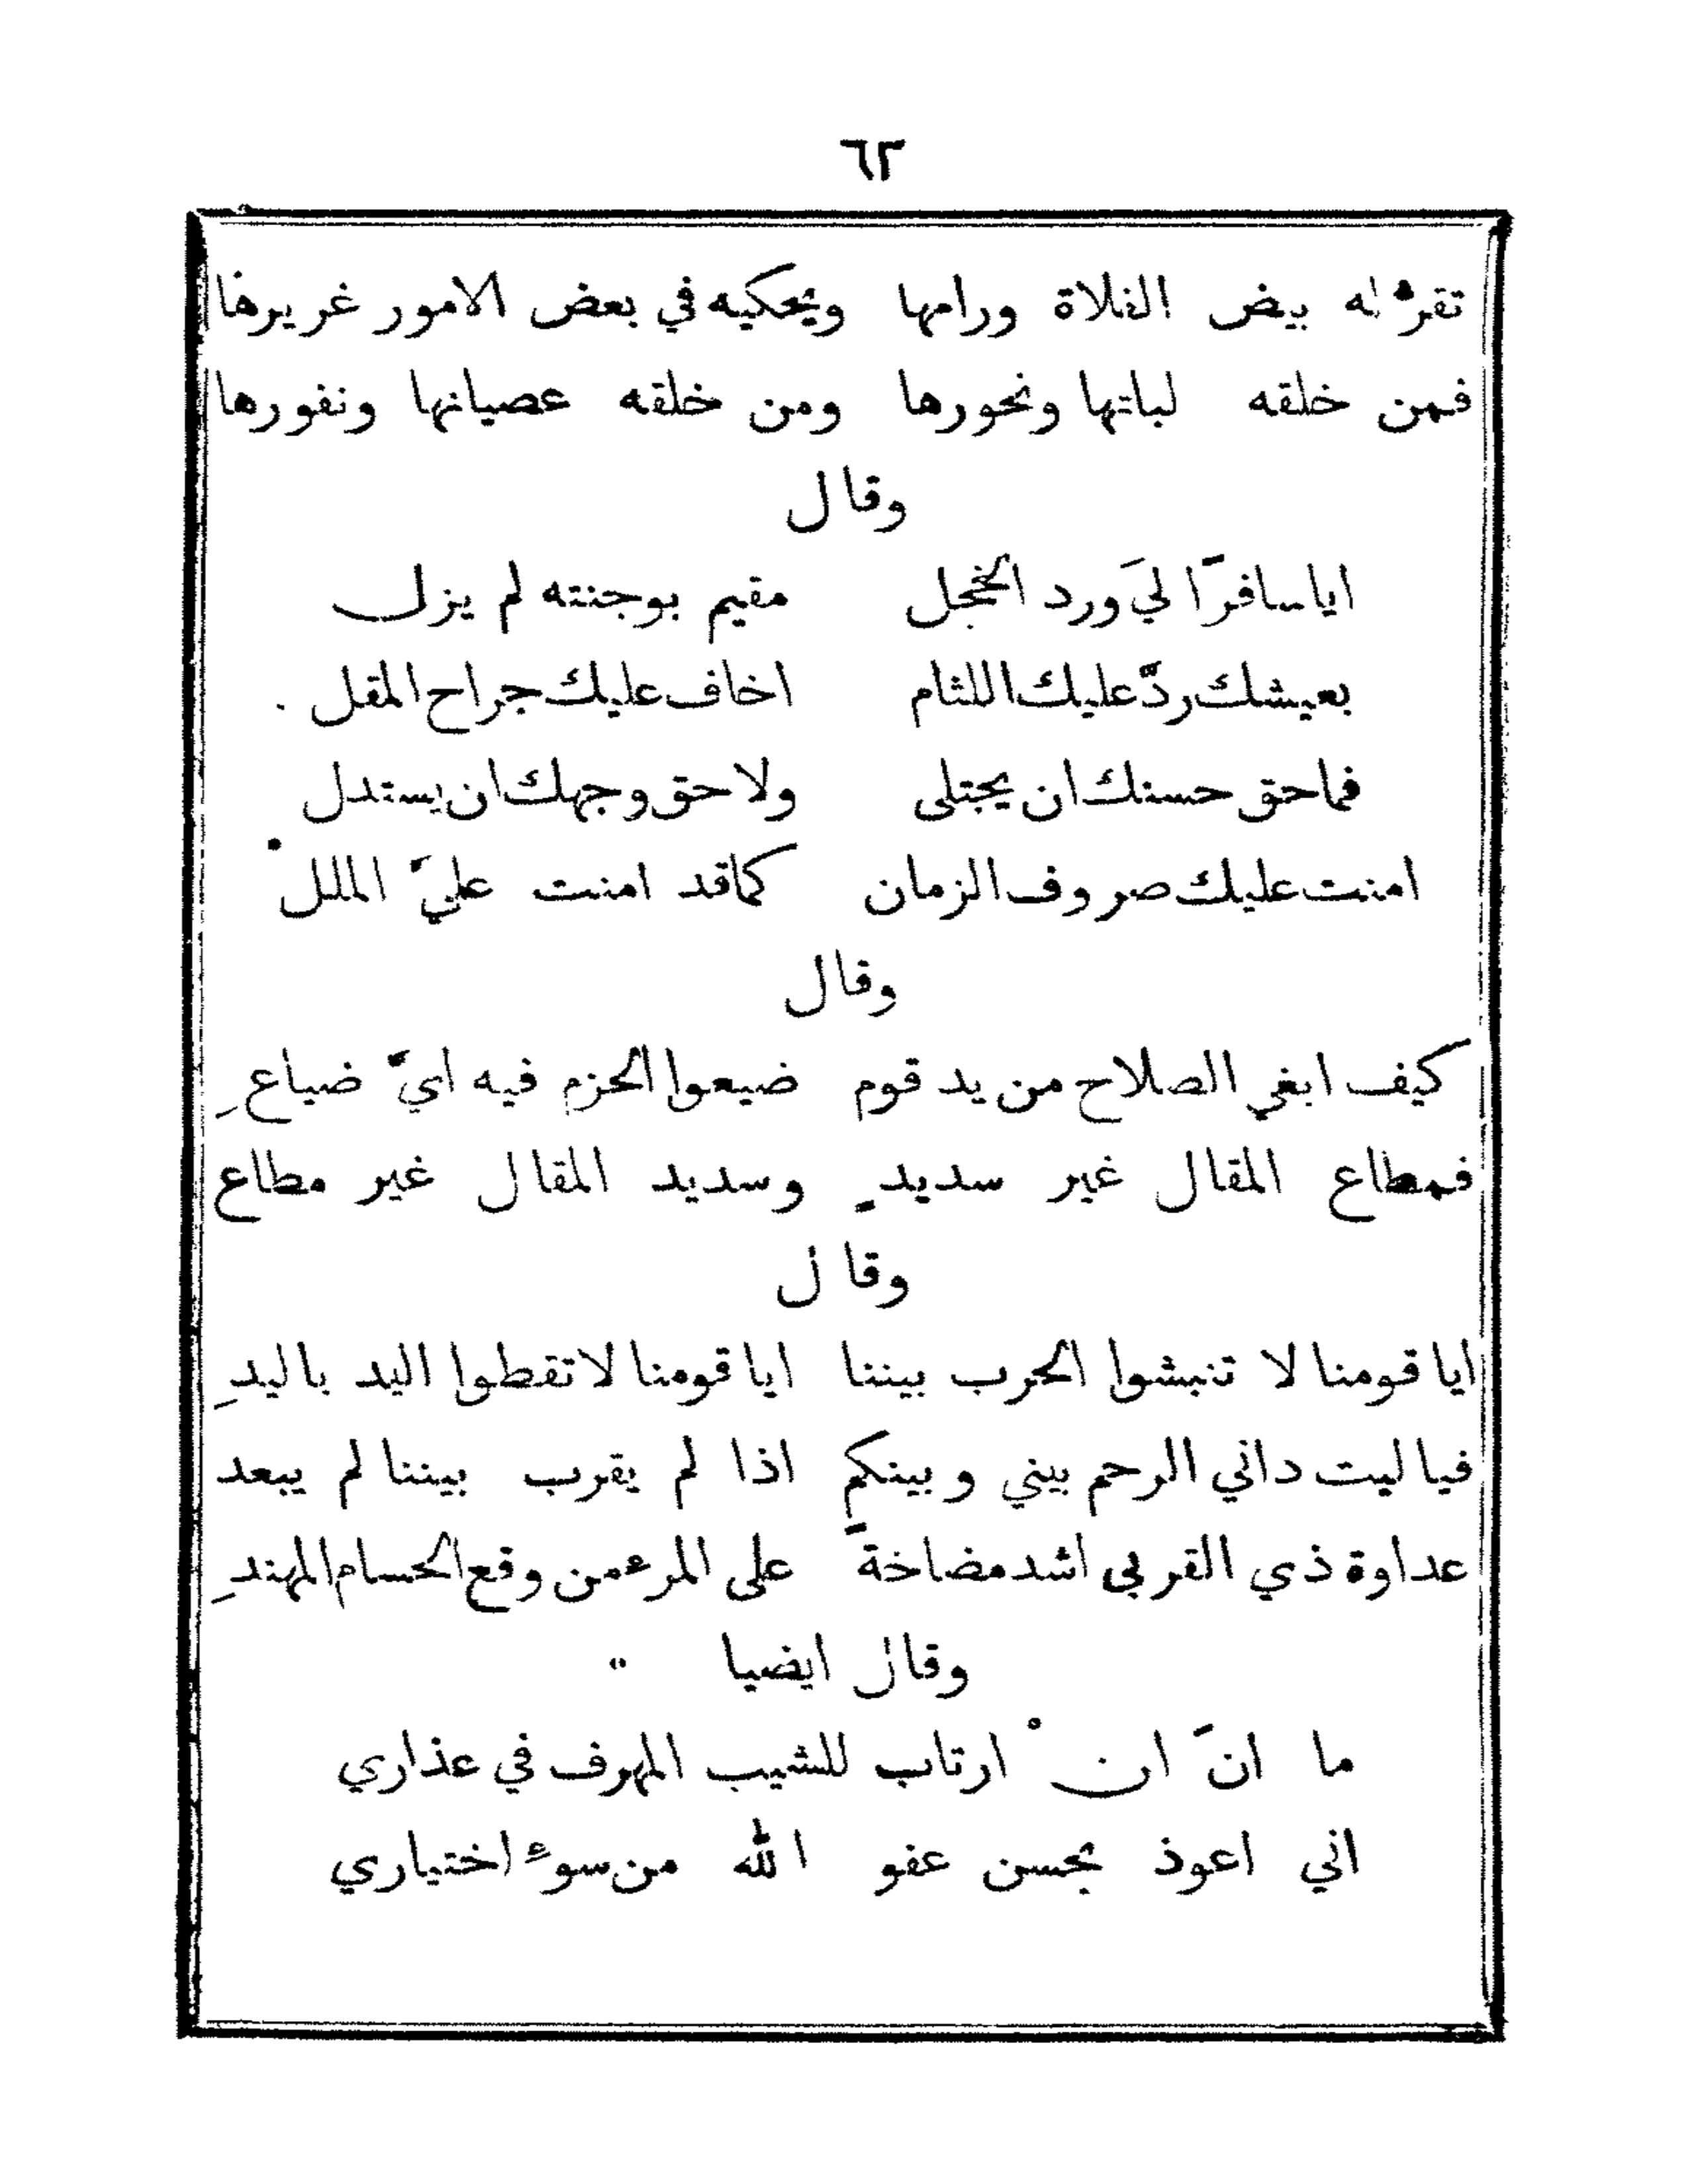 ٦٢
تقرّ له بيض الفلاة ورامها ويحكيه في بعض الامور غريرها
فمن خلقه لباتها ونحورها ومن خلقه عصيانها ونفورها
وقال
ايا سافرًا لي ورد الخجل مقيم بوجنته لم يزل
بعيشك ردّ عليك اللثام اخاف عليك جراح المقل
فما حق حسنك ان يجتلى ولا حق وجهك ان يستدل
امنت عليك صروف الزمان كما قد امنت عليّ الملل
وقال
كيف ابغي الصلاح من يد قوم ضيعوا الحزم فيه ايّ ضياعِ
فمطاع المقال غير سديدٍ وسديد المقال غير مطاع
وقال
ايا قومنا لا تنبشوا الحرب بيننا ايا قومنا لا تقطوا اليد باليدِ
فيا ليت داني الرحم بيني وبينكم اذا لم يقرب بيننا لم يبعد
عداوة ذي القربى اشد مضاخةً على المرء من وقع الحسام المهندِ
وقال ايضيا
ما انَ انْ ارتاب للشيب المهرف في عذاري
اني اعوذ بحسن عفو الله من سوء اختياري